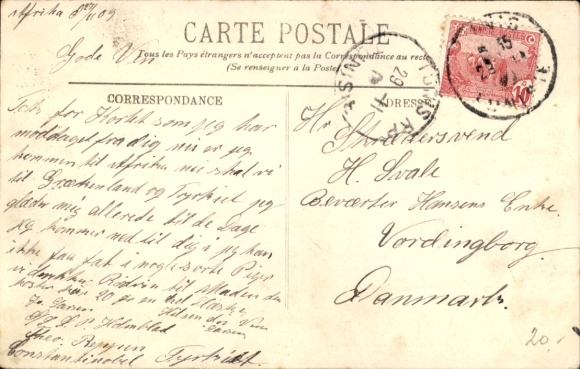 Afrika 09
CARTE POSTALE
Gode Ven
Tous les Pays étrangers n'acceptent pas la Correspondance au recto
(Se renseigner à la Poste)
CORRESPONDANCE
ADRESSE
Tak for Kortet som jeg har
modtaget fra dig nu er jeg
kommen til Afrika nu skal vi
til Grækenland og Tyrkiet jeg
glæder mig allerede til de Dage
jeg kommer ned til dig
ikke faa fat i nogle sorte Piger
vi drikker Rødvin til Maden den
koster 20 Øre en hel Flaske
Hilsen din Ven
Holmblad
Constantinobel Tyrkiet
Hr
Skrædersvend
H. Svale
Beværter Hansens Enke.
Vordingborg
Danmark.
TUNIS
10
20.-